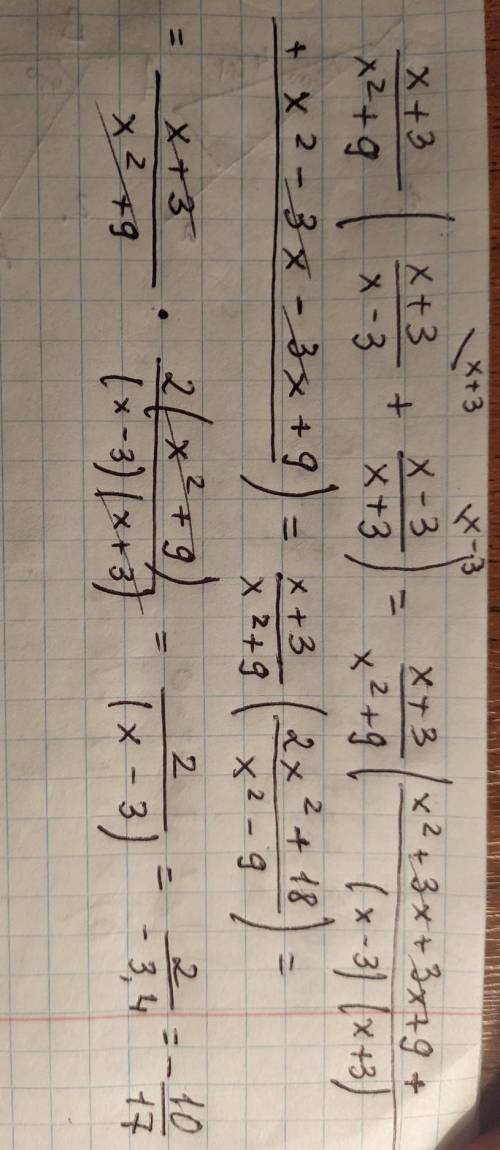 x+3/x²+9 (x+3/x-3 + x-3/x+3) = x+3/x²+9 (x²+3x+3x+9+
x+3 x-3
(x-3)(x+3)
+x²-3x-3x+9) = x+3/x²+9 (2x²+18/x²-9) =
= x+3/x²+9 · 2(x²+9)/(x-3)(x+3) = 2/(x-3) = 2/-3,4 = -10/17